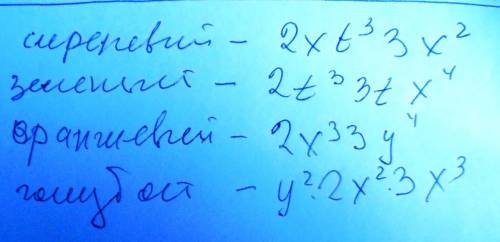 сиреневый – 2xt³3x²
зеленый – 2t³3tx⁴
оранжевый – 2x³3y⁴
голубой – y²·2x²·3x³